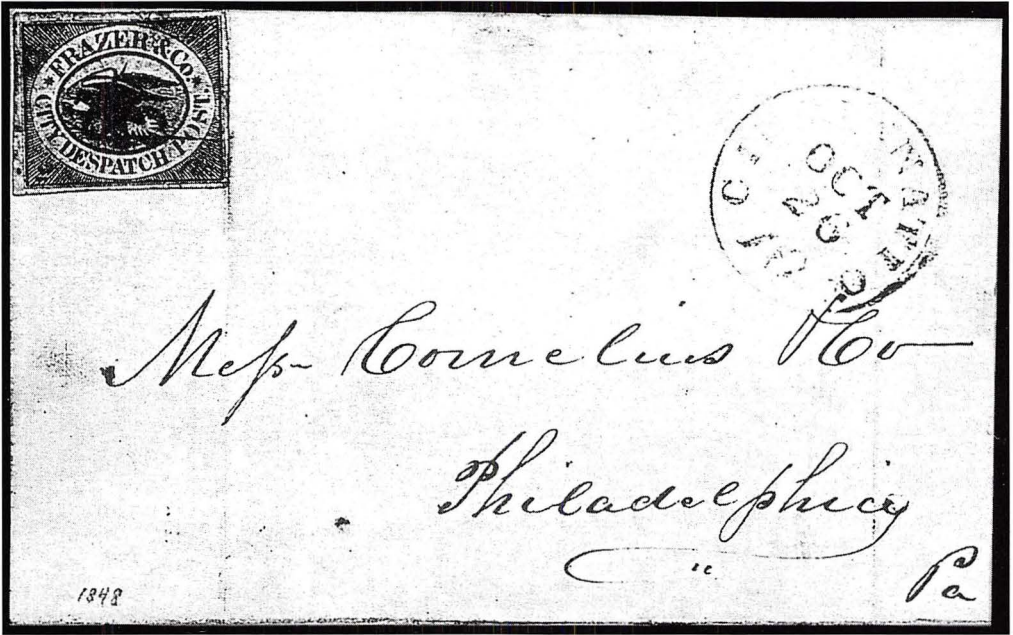 ★ FRAZER & Co. ★
CITY DESPATCH POST.
CINCINNATI O.
OCT
26
Mess Cornelius & Co
Philadelphia
Pa
1848